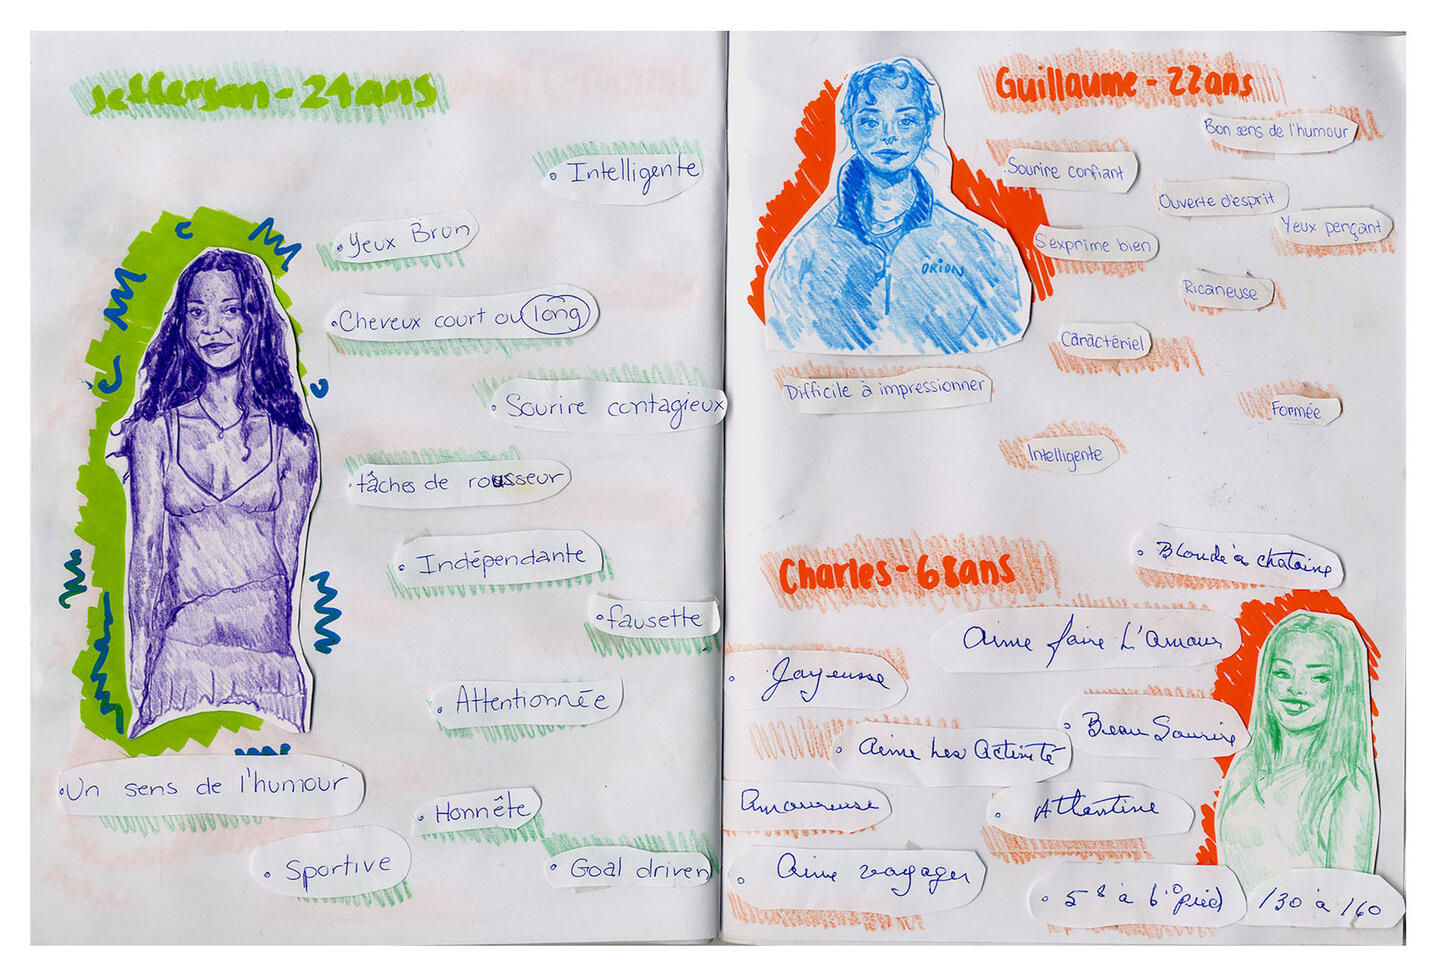 Jefferson - 24 ans
• Intelligente
• Yeux Brun
• Cheveux court ou long
• Sourire contagieux
• tâches de rousseur
• Indépendante
• fausette
• Attentionnée
• Un sens de l'humour
• Honnête
• Sportive
• Goal driven
Guillaume - 22 ans
Bon sens de l'humour
Sourire confiant
Ouverte d'esprit
Yeux perçant
S'exprime bien
ORION
Ricaneuse
Caractériel
Difficile à impressionner
Formée
Intelligente
Charles - 68 ans
• Blonde à chataine
Aime faire L'amour
• Joyeusse
• Beau Sourire
• Aime Les Activité
Amoureuse
• Attentive
• Aime voyager
• 5'8 à 6'0 pied
130 à 160